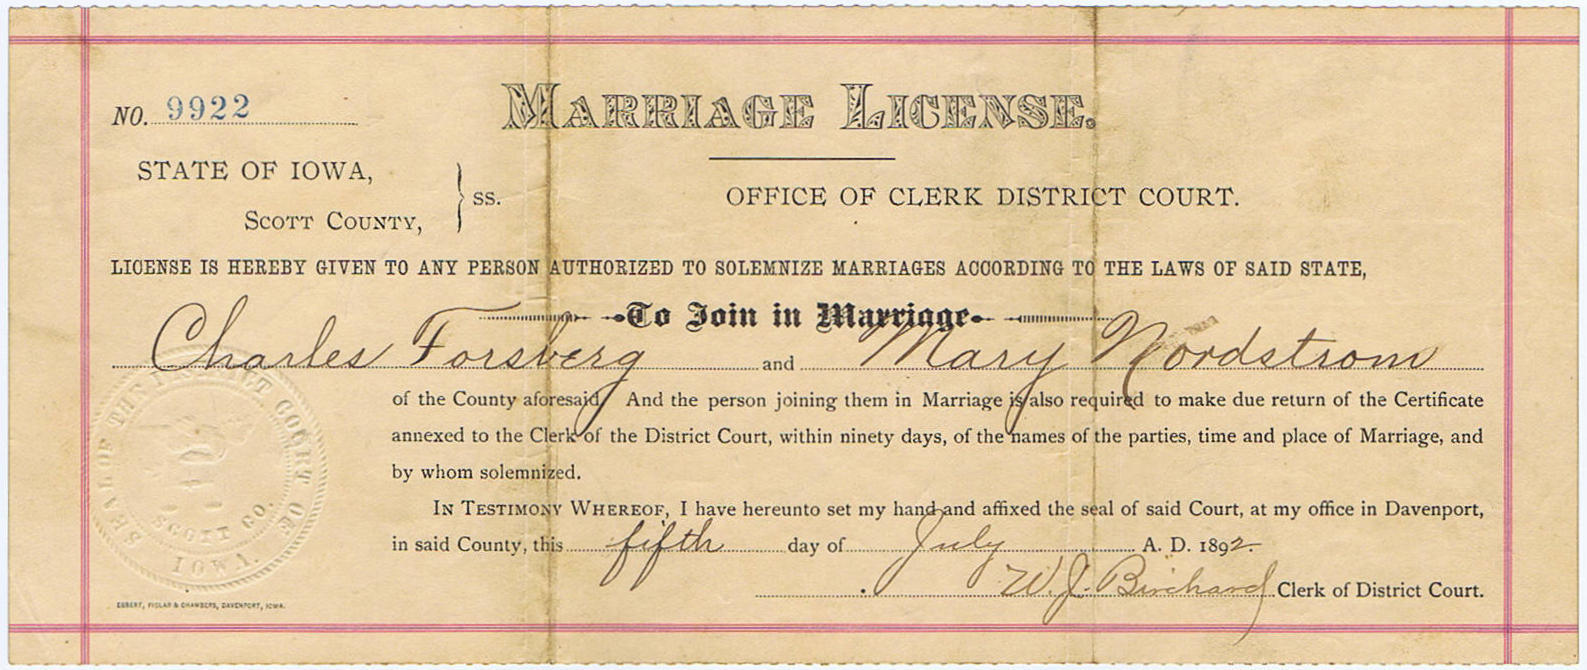 NO. 9922
MARRIAGE LICENSE.
STATE OF IOWA,
SCOTT COUNTY,
} SS.
OFFICE OF CLERK DISTRICT COURT.
LICENSE IS HEREBY GIVEN TO ANY PERSON AUTHORIZED TO SOLEMNIZE MARRIAGES ACCORDING TO THE LAWS OF SAID STATE,
To Join in Marriage
Charles Forsberg and Mary Nordstrom
of the County aforesaid, And the person joining them in Marriage is also required to make due return of the Certificate
annexed to the Clerk of the District Court, within ninety days, of the names of the parties, time and place of Marriage, and
by whom solemnized.
IN TESTIMONY WHEREOF, I have hereunto set my hand and affixed the seal of said Court, at my office in Davenport,
in said County, this fifth day of July A. D. 1892.
W. J. Birchard Clerk of District Court.
SEAL OF THE DISTRICT COURT OF
SCOTT CO.
IOWA.
EGBERT, FIDLAR & CHAMBERS, DAVENPORT, IOWA.